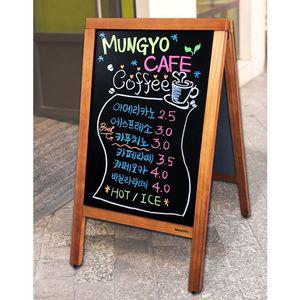 MUNGYO
CAFE
Coffee
아메리카노 2.5
에스프레소 3.0
Best 카푸치노 3.0
카페라떼 3.5
카페모카 4.0
바닐라라떼 4.0
HOT / ICE
MUNGYO